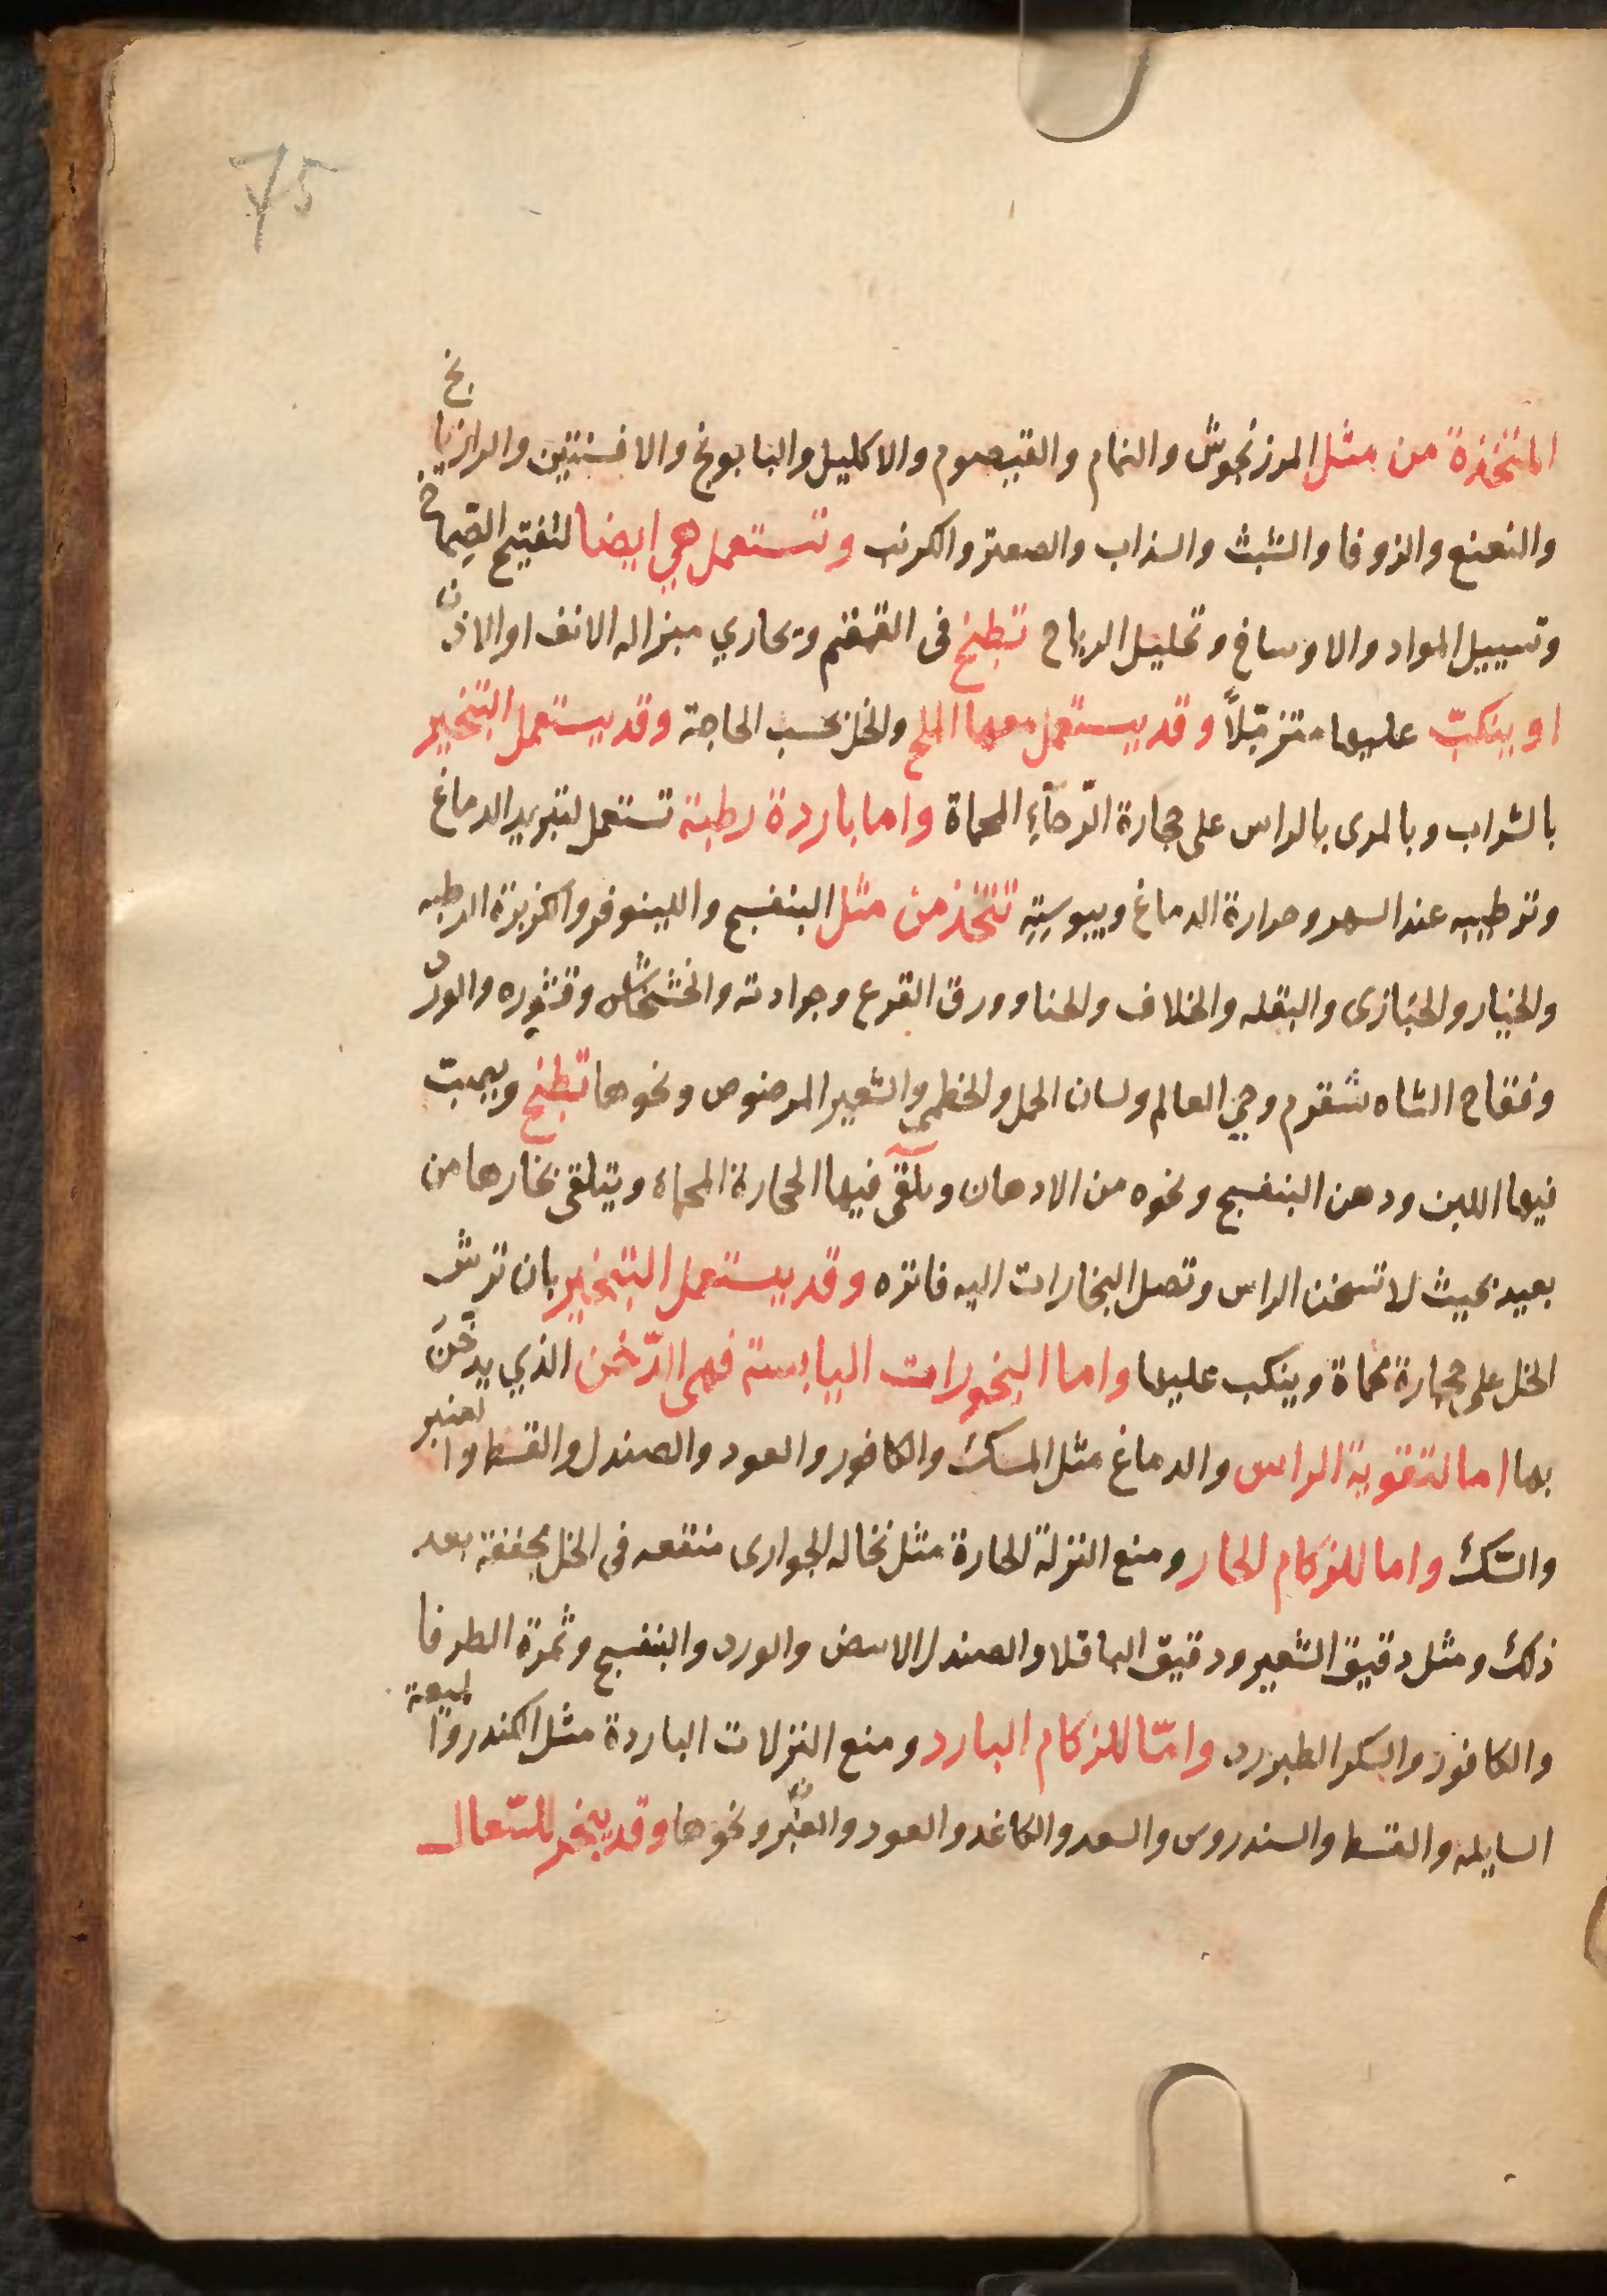 75
المتخذة من مثل المرزنجوش والنمام والقيصوم والاكليل والبابونج والافسنتين والرازيانج
والنعنع والزوفا والشبث والسذاب والصعتر والكرنب وتستعمل هي ايضا لتفتيح الصماخ
وتسييل المواد والاوساخ وتحليل الرياح تطبخ فى القمقم ويحاري ميزاله الانف او الاذن
او ينكبّ عليها متزمّلاً وقد يستعمل معها الملح والخل بحسب الحاجة وقد يستعمل التبخير
بالشراب وبالمرى بالراس على حجارة الرّحآءِ المحماة واما باردة رطبة تستعمل لتبريد الدماغ
وترطيبه عند السهر وحرارة الدماغ ويبوسته تتخذ من مثل البنفسج واللينوفر والكزبرة الرطبه
والخيار والخبازى والبقله والخلاف والحنا وورق القرع وجرادته والخشخاش وقشوره والورد
وفقاح الشاه شقرم وحي العالم ولسان الحمل والخطمى والشعير المرضوض ونحوها تطبخ ويصب
فيها اللبن ودهن البنفسج ونحوه من الادهان ويلقى فيها الحجارة المحماة ويتلقى بخارها من
بعيد بحيث لا تسخن الراس وتصل البخارات اليه فاتره وقد يستعمل التبخير بان ترش
الخل على حجارة محماة وينكب عليها واما البخورات اليابسة فهى الدّخن الذي يدخّن
بها اما لتقوية الراس والدماغ مثل المسك والكافور والعود والصندل والقسط والعنبر
والسّك واما للزكام الحار ومنع النزلة الحارة مثل نخاله الحوارى منقعه فى الخل مجففة بعد
ذلك ومثل دقيق الشعير ودقيق الباقلا والصندل الابيض والورد والبنفسج وثمرة الطرفا
والكافور والسكر الطبرزد وامّا للزكام البارد ومنع النزلات الباردة مثل الكندر والميعة
السايله والقسط والسندروس والسعد والكاغد والعود والعنبر ونحوها وقد يبخر للسّعال